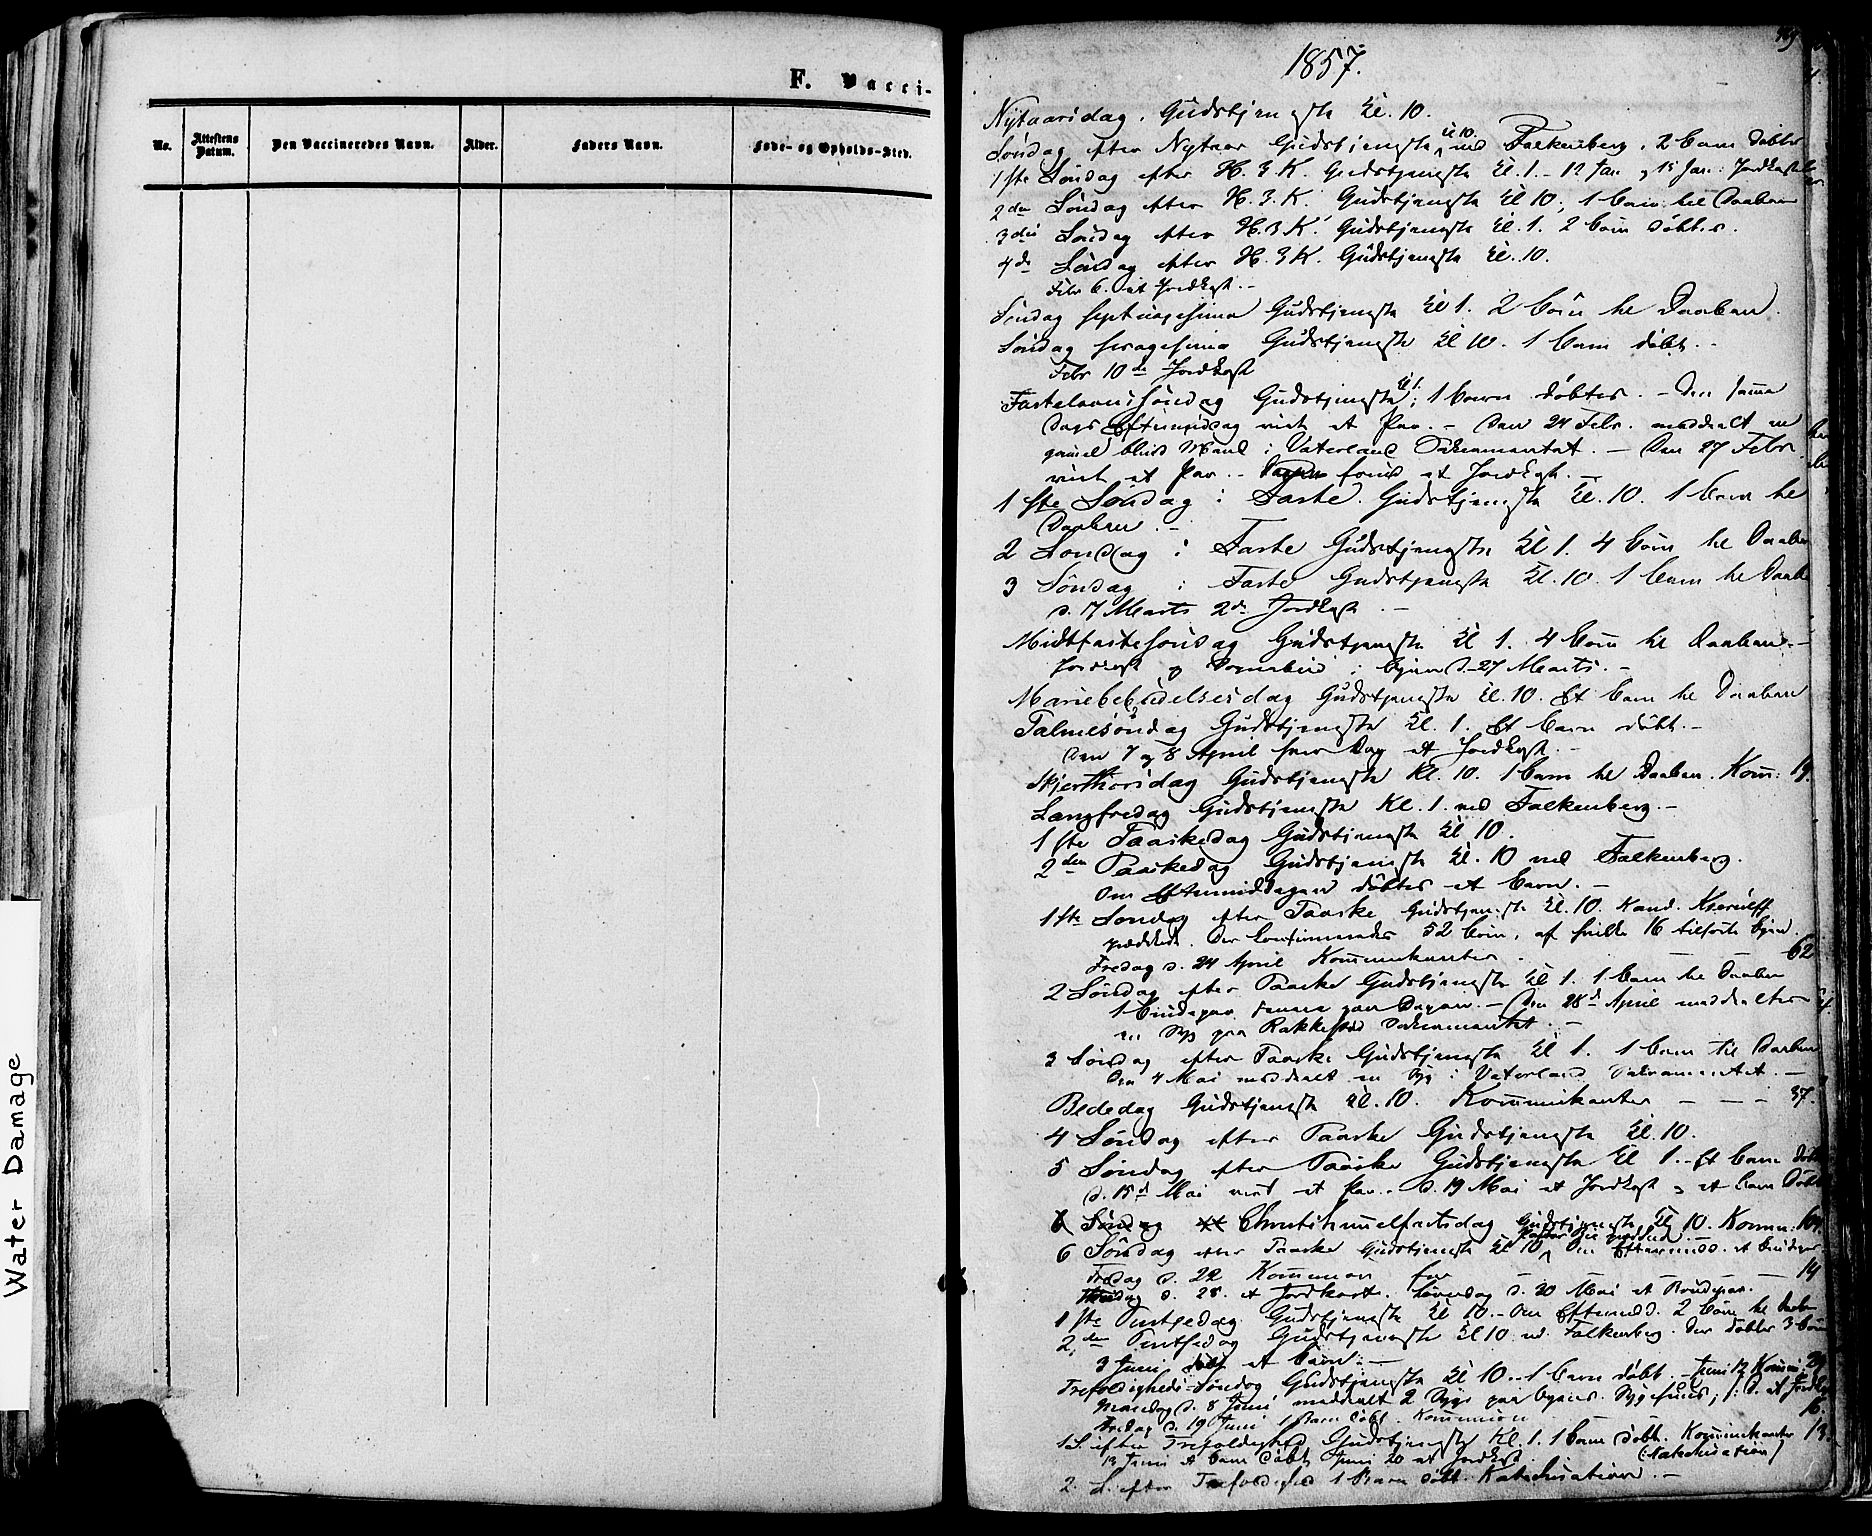 F. Vacci-
No.
Attestens Datum.
Den Vaccineredes Navn.
Alder.
Faders Navn.
Føde- og Opholds-Sted.
Water Damage
1857.
Nytaarsdag. Gudstjeneste Kl. 10.
Søndag efter Nytaar Gudstjeneste Kl 10. ved Falkenberg. 2 Børn døbtes
1ste Søndag efter H. 3 K. Gudstjeneste Kl. 1. - 12 Jan. og 15 Jan: Jordkastelse
2den Søndag efter H. 3. K. Gudstjeneste Kl 10; 1 Barn til Daaben
3die Søndag efter H. 3 K. Gudstjeneste Kl. 1. 2 Børn døbtes.
4de Søndag efter H. 3 K. Gudstjeneste Kl. 10.
Febr 6. et Jordkast. -
Søndag septuagesima Gudstjeneste Kl 1. 2 Børn til Daaben.
Søndag sexagesima Gudstjeneste Kl 10. 1 Barn døbt. -
Febr 10de Jordkast
Fastelavnssøndag Gudstjeneste Kl 1.; 1 Barn døbtes. - Den samme
Dags Eftermiddag viet et Par. - Den 24 Febr. meddeelt en
gammel blind Mand i Vaterland Sakramentet. - Den 27 Febr
viet et Par. - et Jordkast. -
1ste Søndag i Faste. Gudstjeneste Kl. 10. 1 Barn til
Daaben. -
2 Søndag i Faste Gudstjeneste Kl 1. 4 Børn til Daaben
3 Søndag i Faste Gudstjeneste Kl. 10. 1 Barn til Daaben
d. 17 Marts 2de Jordkast. -
Midtfastesøndag Gudstjeneste Kl 1. 4 Børn til Daaben. -
Jordkast og i Byen d. 27 Marts. -
Mariebebudelsesdag Gudstjeneste Kl. 10. Et Barn til Daaben
Palmesøndag Gudstjeneste Kl. 1. Et Barn døbt. -
Den 7 og 8 April hver Dag et Jordkast. -
Skjerthorsdag Gudstjeneste Kl. 10. 1 Barn til Daaben. Kom: 19.
Langfredag Gudstjeneste Kl. 1. ved Falkenberg. -
1ste Paaskedag Gudstjeneste Kl 10.
2den Paaskedag Gudstjeneste Kl. 10 ved Falkenberg.
Om Eftermiddagen døbtes et Barn. -
1ste Søndag efter Paaske Gudstjeneste Kl. 10. Kand. Kierulff
prædikede. Der konfirmeredes 52 Børn, af hvilke 16 tilhørte Byen.
Fredag d. 24 April Kommunikanter - - 62
2 Søndag efter Paaske Gudstjeneste Kl 1. 1 Barn til Daaben
1 Brudepar samme Dagen. - Den 28de April meddeeltes
en Syg paa Rakkestad Sakramentet. -
3 Søndag efter Paaske Gudstjeneste Kl 1. 1 Barn til Daaben
Den 4 Mai meddeelt en Syg i Vaterland Sakramentet. -
Bededag Gudstjeneste Kl. 10. Kommunikanter - - - 37.
4 Søndag efter Paaske Gudstjeneste Kl. 10.
5 Søndag efter Paaske Gudstjeneste Kl 1. - Et Barn døbt
d. 15de Mai viet et Par. - d. 19 Mai et Jordkast og et Barn døbt
6 Søndag Christihimmelfartsdag Gudstjeneste Kl 10. Komm:
6 Søndag efter Paaske Gudstjeneste Kl 10, Om Eftermidd. et Brudepar.
Fredag d. 22 Kommunion for - 14
d. 28. et Jordkast. Løverdag d. 30 Mai et Brudepar.
1ste Pintsedag Gudstjeneste Kl 10. - Om Eftermidd. 2 Børn til Daaben
2den Pintsedag Gudstjeneste Kl 10 ved Falkenberg. Der døbtes 3 Børn
3 Juni døbt et Barn. -
Trefoldigheds-Søndag Gudstjeneste Kl 10. - 1 Barn døbt. - Juni 12 Komm:
Mandag d. 8 Juni meddeelt 2 Syge paa Byens Sygehuus; et Jordk
Fredag d. 19 Juni 1 Barn døbt. Kommunion 16.
1 S. efter Trefoldighed Gudstjeneste Kl. 1. 1 Barn døbt. Kommunikanter 13.
13 Juni et Barn døbt Juni 20 et Jordkast. (Katechisation)
2. S. efter Trefoldighed 1 Barn døbt. Katechisation. -